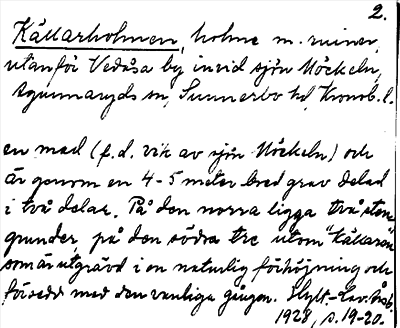 2.
Källarholmen, holme m. ruiner,
utanför Vedåsa by invid sjön Möckeln,
Agunnaryds sn, Sunnerbo hd, Kronob. l.
en mad (f.d. vik av sjön Möckeln) och
är genom en 4-5 meter bred grav delad
i två delar. På den norra ligga två sten-
grunder, på den södra tre utom "Källaren"
som är utgrävd i en naturlig förhöjning och
försedd med den vanliga gången. Hylt.-Cav. Årsb.
1928, s. 19-20.